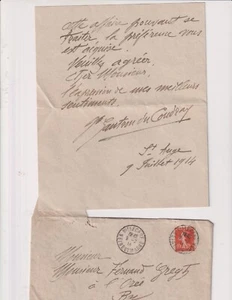 cette affaire pouvant se
traiter, la préférence vous
est acquise.
Veuillez agréer,
Cher Monsieur,
l'expression de mes meilleurs
sentiments.
du Coudray
St Ange
9 Juillet 1914
Monsieur
Monsieur Fernand Gregh
à